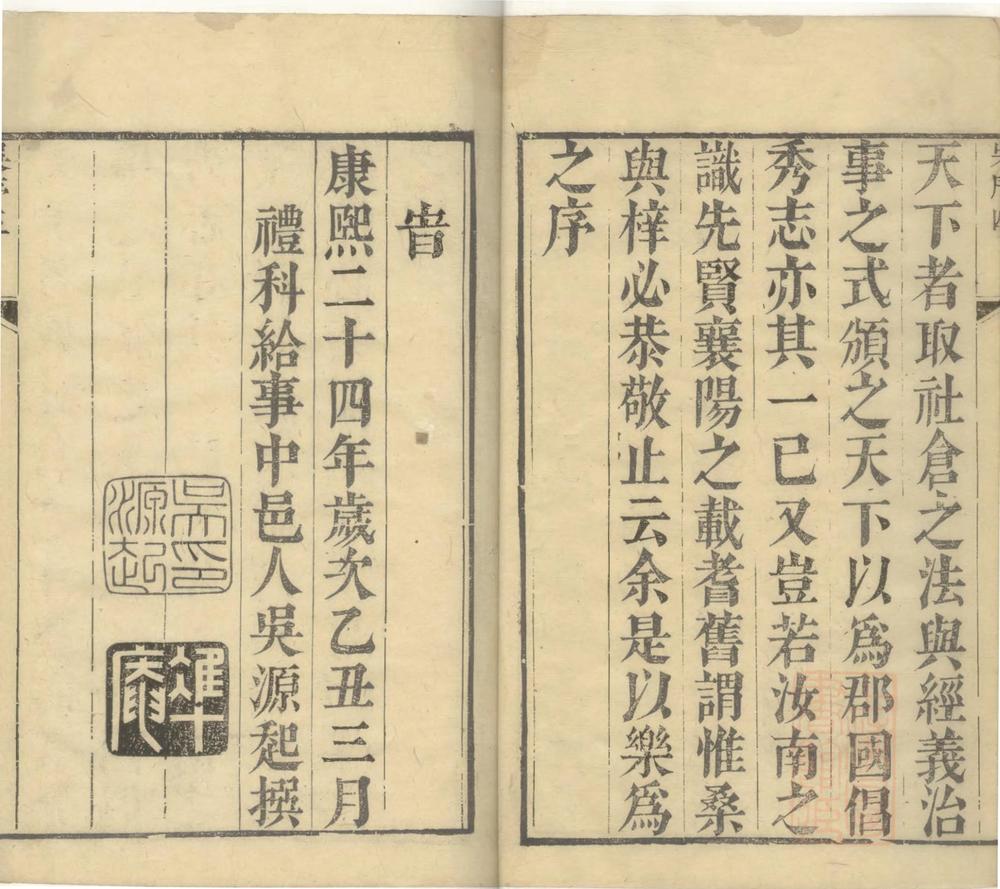 天下者取社倉之法與經義治
事之式頒之天下以爲郡國倡
秀志亦其一已又豈若汝南之
識先賢襄陽之載耆舊謂惟桑
與梓必恭敬止云余是以樂爲
之序
旹
康熙二十四年歲次乙丑三月
禮科給事中邑人吳源起撰
吳印源起